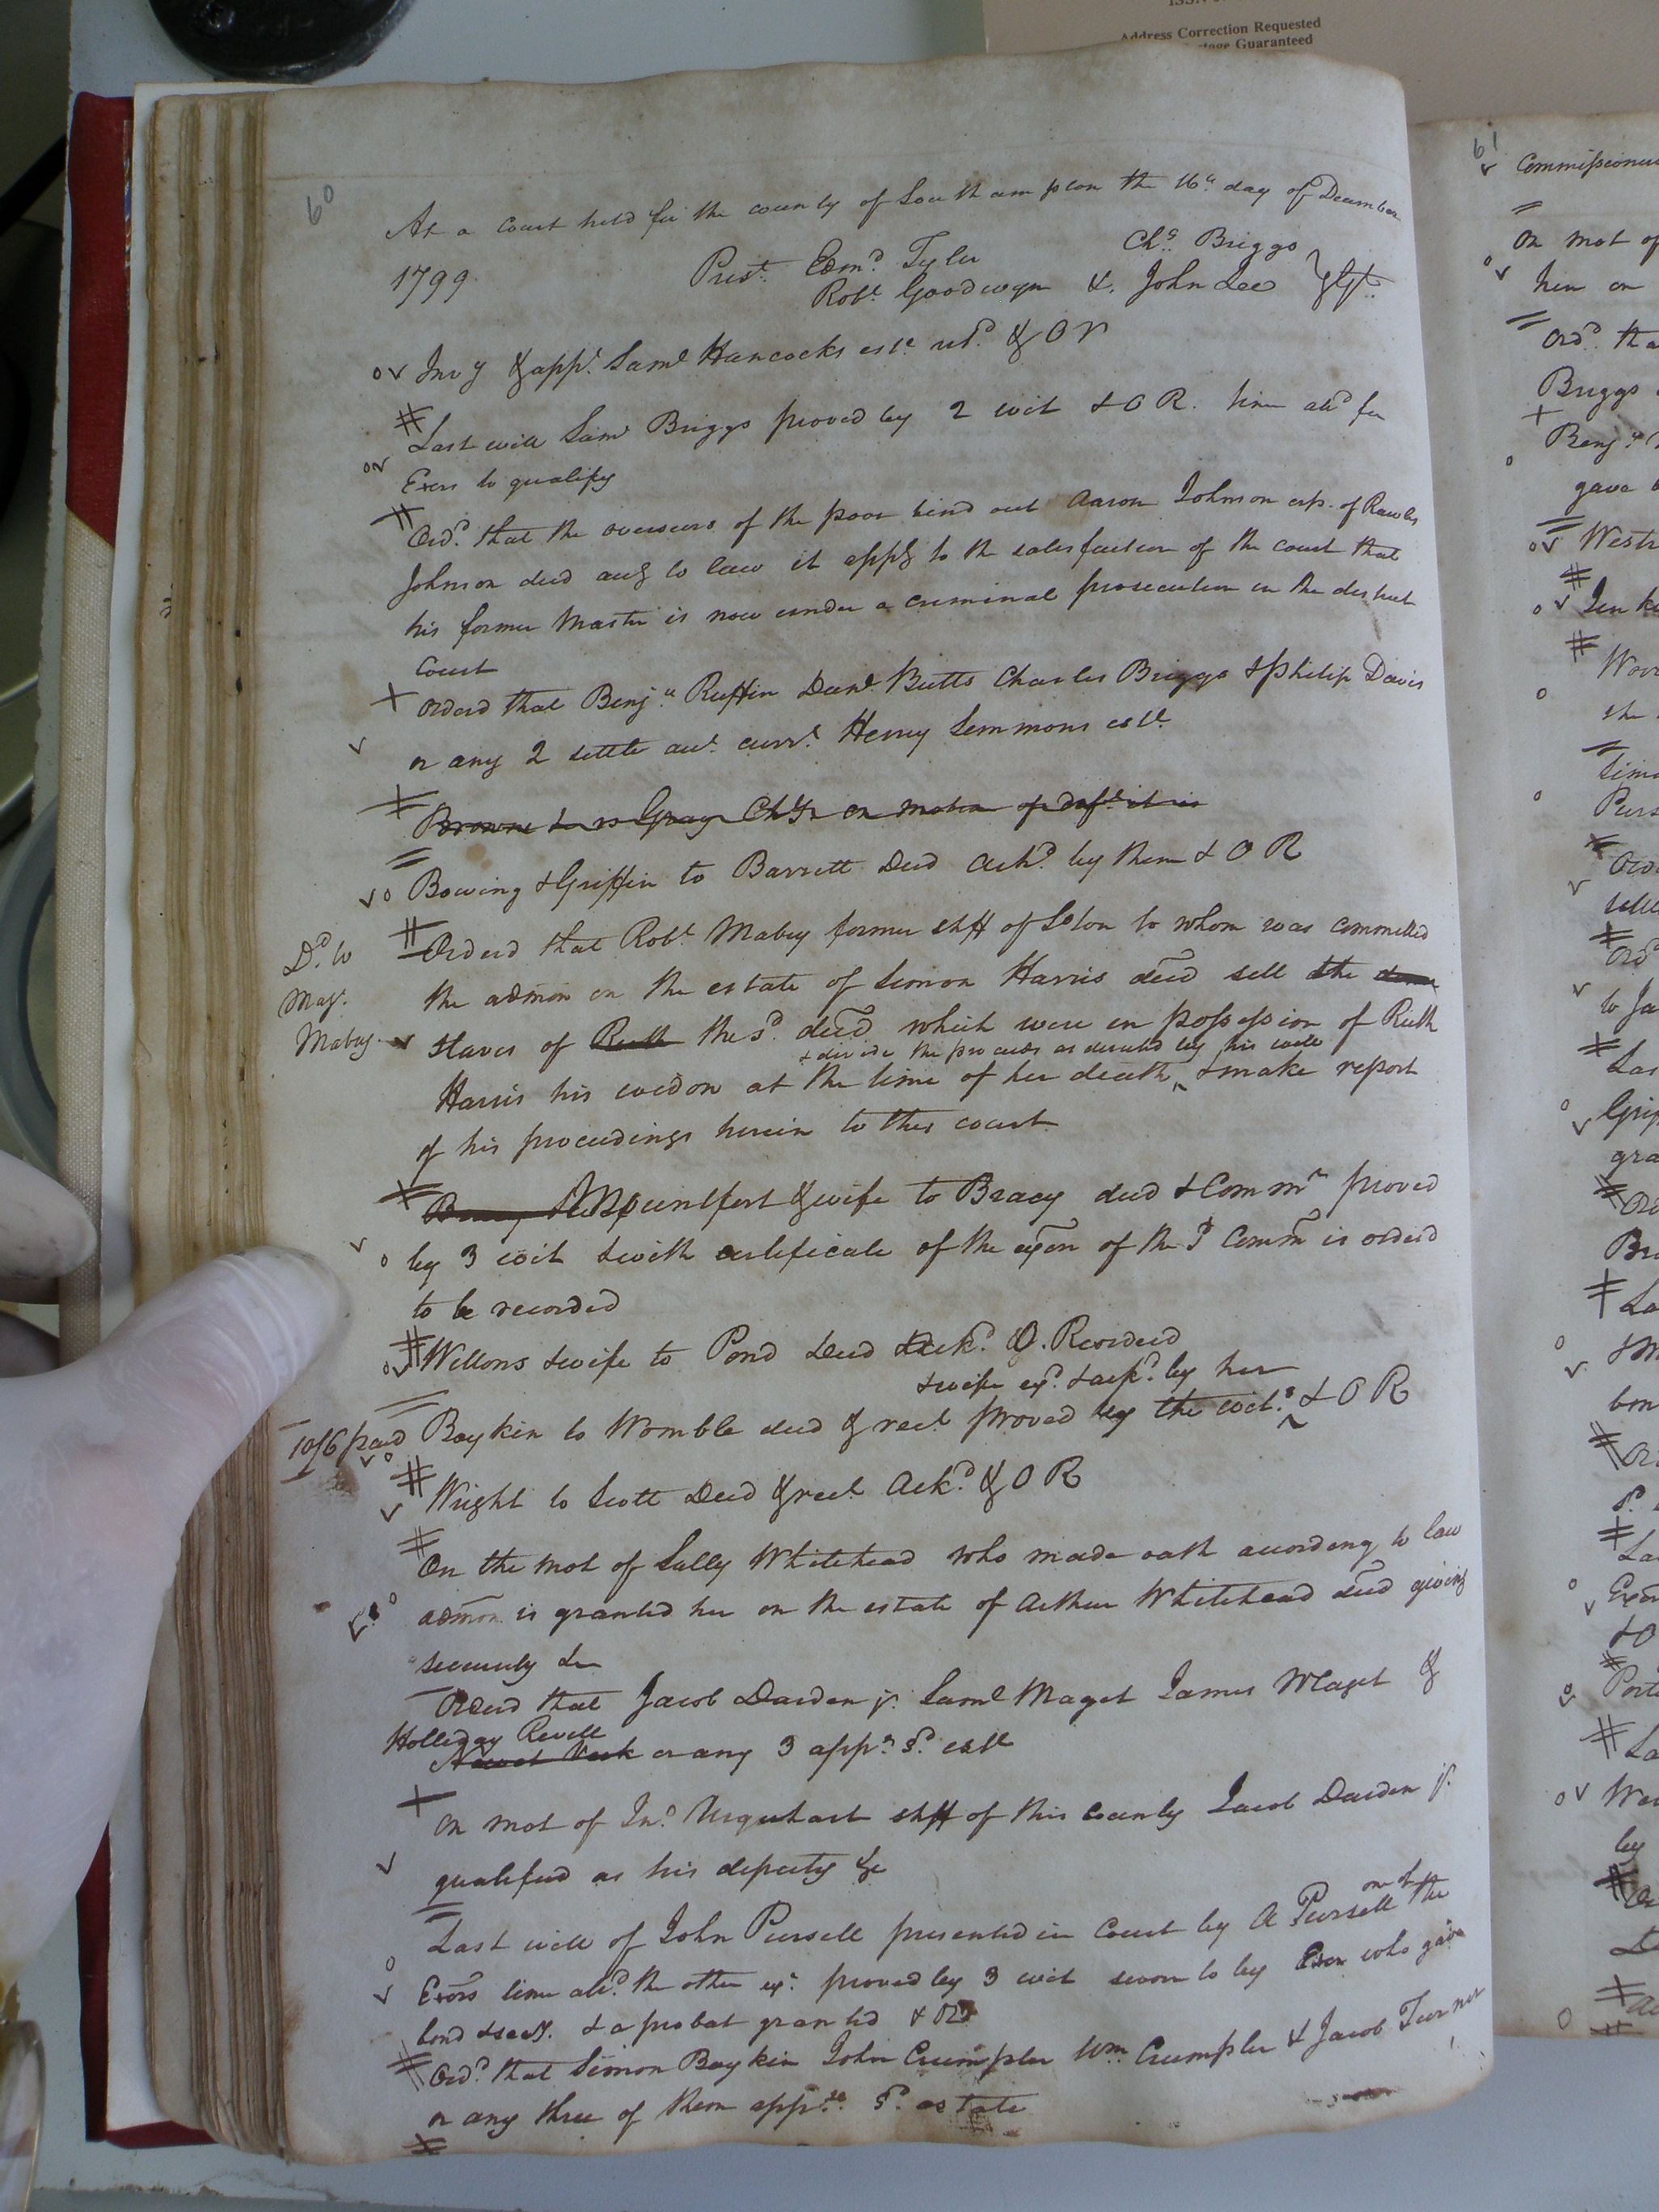 Address Correction Requested
Guaranteed
60
At a Court held for the county of Southampton the 16th day of December
1799. Prest. Edmd. Tyler Chs. Briggs
Robt. Goodwyn &. John Lee Gt.
Invy & appt. Saml Hancocks este. retd. & O r
Last will Saml Briggs proved by 2 wit & O R. time ald for
Exers to qualify
Ord. that the overseers of the poor bind out Aaron Johnson orp. of Rawls
Johnson decd accg to law it appg to the satisfaction of the court that
his former Master is now under a criminal prosecution in the district
Court
Orderd that Benja Ruffin Danl. Butts Charles Briggs & Philip Davis
or any 2 settle act. currt. Henry Simmons este.
Browne & vs Gray Ch on motion of deft. it is
Bowing & Griffin to Barrett Deed Ackd. by them & O R
Do. to
Maj.
Mabry.
Orderd that Robt. Mabry former shff of Soton to whom was committed
the admon on the estate of Simon Harris decd sell the
slaves of Ruth the sd. decd which were in possession of Ruth
& divide the proceeds as directed by his will
Harris his widow at the time of her death & make report
of his proceedings herein to this court
Mountfort & wife to Bracy deed & Commn proved
by 3 wit & with certificate of the exon of the sd Comm is orderd
to be recorded
Wellons & wife to Pond Deed Ack. O. Recorded
& wife exd. & ackd. by her
10/6 paid
Boykin to Womble deed & rect. proved by the wits. & O R
Wright to Scott Deed & rect. Ackd. & O R
On the mot of Sally Whitehead who made oath according to law
admon is granted her on the estate of Arthur Whitehead decd giving
security &c
Orderd that Jacob Darden jr. Saml Maget James Maget &
Holliday Revell
or any 3 appr. sd. este
On mot of Jno. Urquhart shff of this County Jacob Darden jr.
qualified as his deputy &c
one of
Last will of John Pursell presented in Court by A Pursell the
Exors time ald. the other ex. proved by 3 wit sworn to by Exor who gave
bond & secy. & a probat granted & OR
Ord. that Simon Boykin John Crumpler Wm Crumpler & Jacob Turner
or any three of them appse. sd. estate
61
Commissioners
On mot of
him on
Ord. tha
Briggs
Benja
gave
Westr
Jenki
she
Time
Purs
Ord
to Ja
Las
Grif
gra
Bri
bon
Port
by